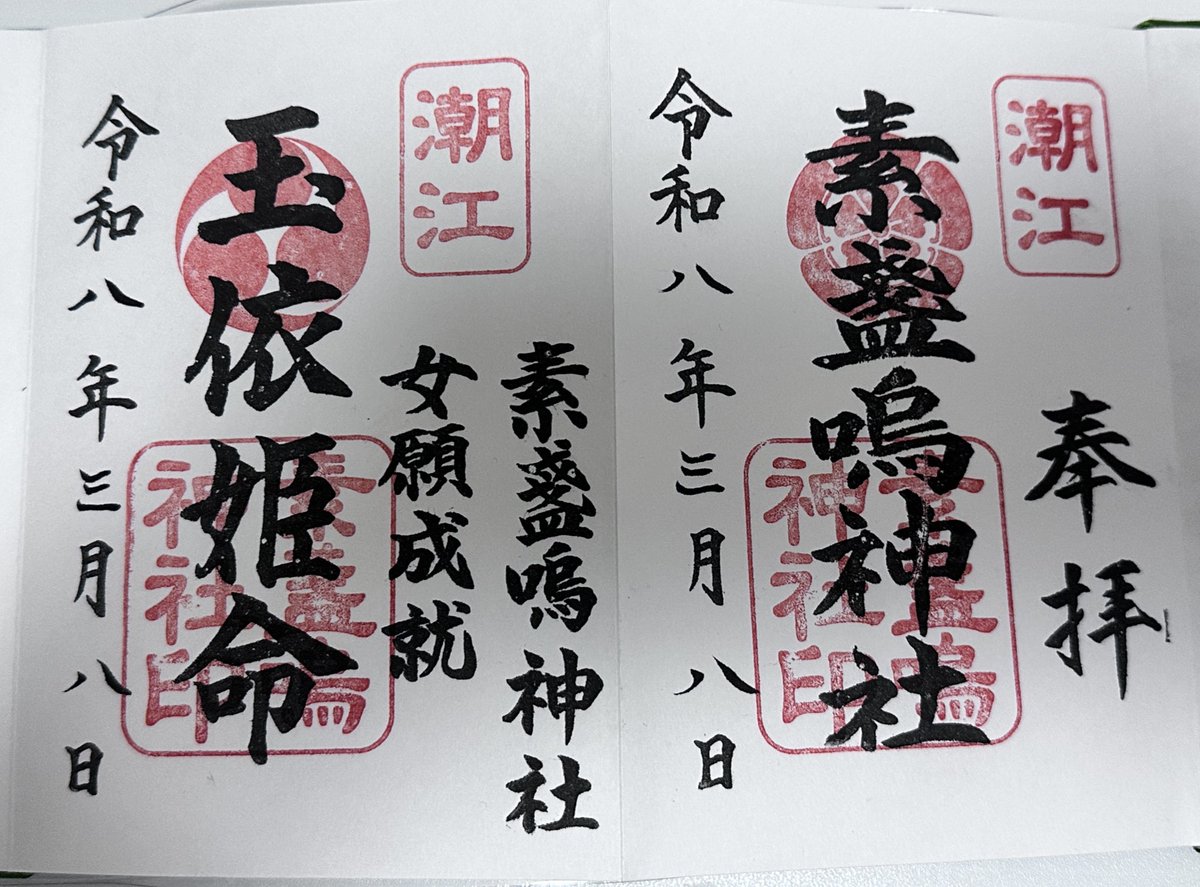 潮江
奉拝
素盞嗚神社
素盞嗚
神社印
令和八年三月八日
潮江
素盞嗚神社
女願成就
玉依姫命
素盞嗚
神社印
令和八年三月八日